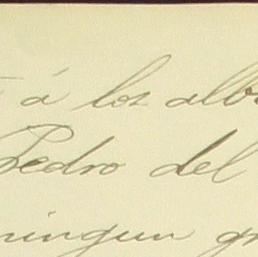 á los alb
Pedro del
ningun gr